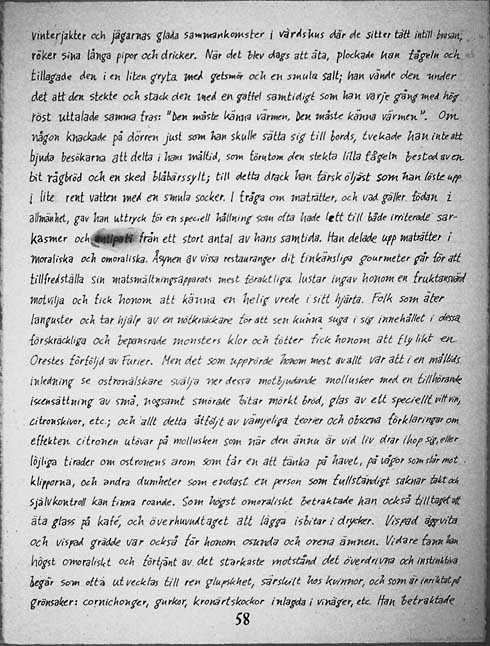 vinterjakter och jägarnas glada sammankomster i värdshus där de sitter tätt intill brasan,
röker sina långa pipor och dricker. När det blev dags att äta, plockade han fågeln och
tillagade den i en liten gryta med getsmör och en smula salt; han vände den under
det att den stekte och stack den med en gaffel samtidigt som han varje gång med hög
röst uttalade samma fras: "Den måste känna värmen, Den måste känna värmen". Om
någon knackade på dörren just som han skulle sätta sig till bords, tvekade han inte att
bjuda besökarna att delta i hans måltid, som förutom den stekta lilla fågeln bestod av en
bit rågbröd och en sked blåbärssylt; till detta drack han färsk öljäst som han löste upp
i lite rent vatten med en smula socker. I fråga om maträtter, och vad gäller födan i
allmänhet, gav han uttryck för en speciell hållning som ofta hade lett till både irriterade sar-
kasmer och antipati från ett stort antal av hans samtida. Han delade upp maträtter i
moraliska och omoraliska. Åsynen av vissa restauranger dit finkänsliga gourmeter går för att
tillfredställa sin matsmältningsapparats mest föraktliga lustar ingav honom en fruktansvärd
motvilja och fick honom att känna en helig vrede i sitt hjärta. Folk som äter
languster och tar hjälp av en nötknäckare för att sen kunna suga i sig innehållet i dessa
förskräckliga och bepansrade monsters klor och fötter fick honom att fly likt en
Orestes förföljd av Furier. Men det som upprörde honom mest av allt var att i en måltids
inledning se ostronälskare svälja ner dessa motbjudande mollusker med en tillhörande
iscensättning av små, nogsamt smörade bitar mörkt bröd, glas av ett speciellt vitt vin,
citronskivor, etc.; och allt detta åtföljt av vämjeliga teorier och obscena förklaringar om
effekten citronen utövar på mollusken som när den ännu är vid liv drar ihop sig, eller
löjliga tirader om ostronens arom som får en att tänka på havet, på vågor som slår mot
klipporna, och andra dumheter som endast en person som fullständigt saknar takt och
självkontroll kan finna roande. Som högst omoraliskt betraktade han också tilltaget att
äta glass på kafé, och överhuvudtaget att lägga isbitar i drycker. Vispad äggvita
och vispad grädde var också för honom osunda och orena ämnen. Vidare fann han
högst omoraliskt och förtjänt av det starkaste motstånd det överdrivna och instinktiva
begär som ofta utvecklas till ren glupskhet, särskilt hos kvinnor, och som är inriktat på
grönsaker: cornichonger, gurkor, kronärtskockor inlagda i vinäger, etc. Han betraktade
58